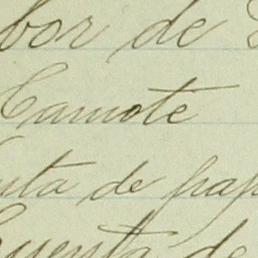 bor de
Camote
uta de pap
Cuenta de